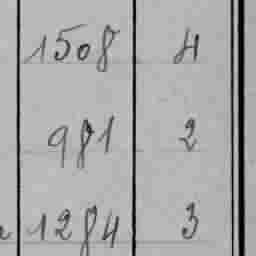 1508 4
981 2
1284 3